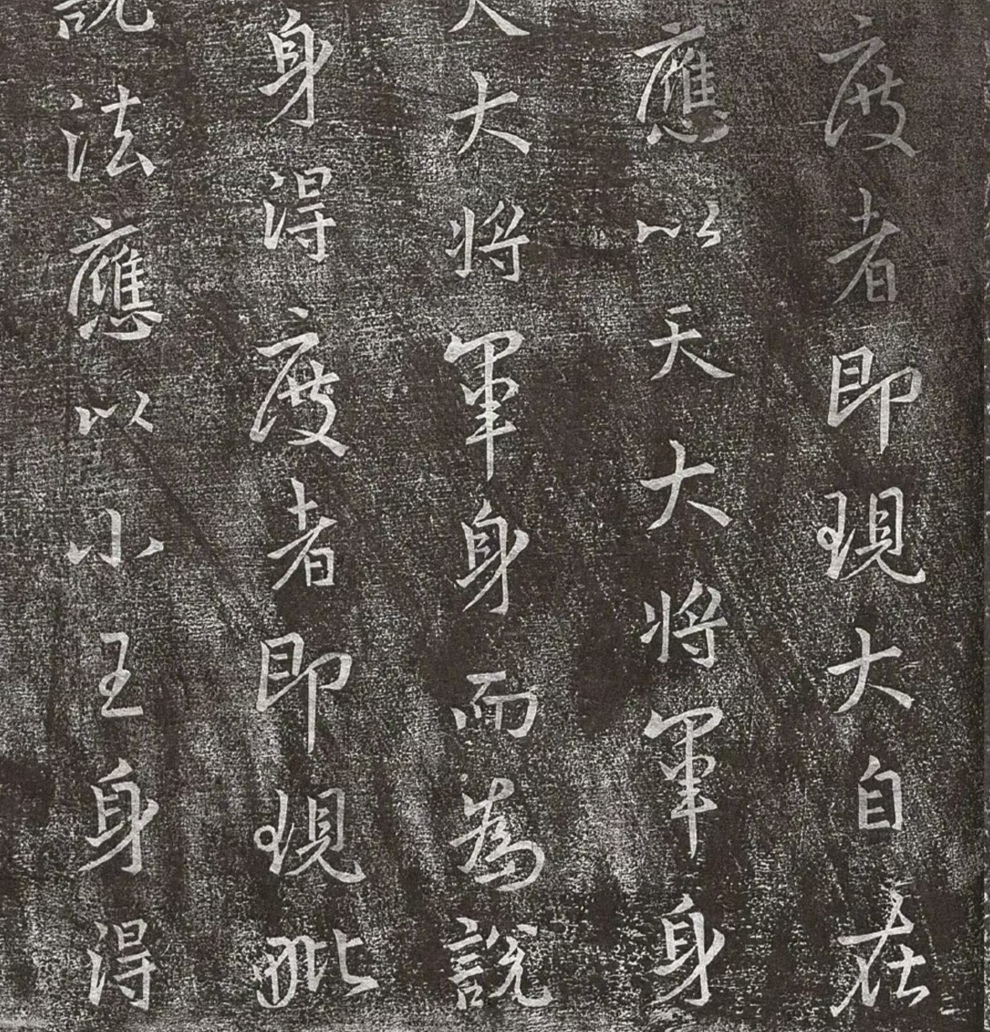 度者即現大自在
應以天大将軍身
天大将軍身而為說
身得度者即現毗
說法應以小王身得